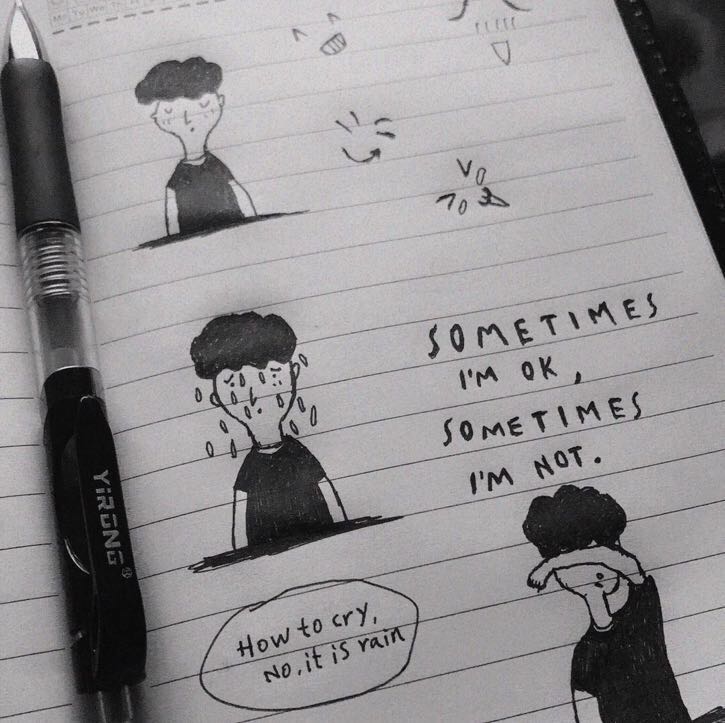 Mo Tu We
SOMETIMES
I'M OK,
SOMETIMES
I'M NOT.
YiRONG
How to cry,
No, it is rain